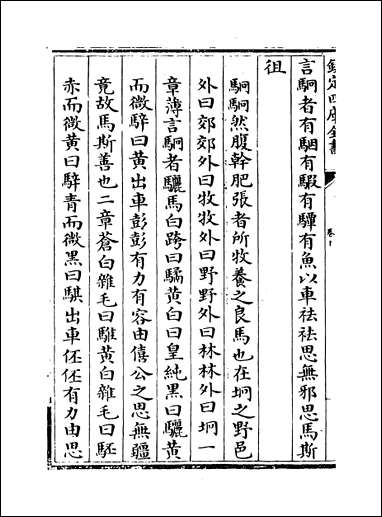 欽定四庫全書
言駉者有駰有騢有驔有魚以車祛祛思無邪思馬斯
徂
駉駉然腹幹肥張者所牧養之良馬也在坰之野邑
外曰郊郊外曰牧牧外曰野野外曰林林外曰坰一
章薄言駉者驪馬白跨曰驈黃白曰皇純黑曰驪黃
而微騂曰黃出車彭彭有力有容由僖公之思無疆
竟故馬斯善也二章蒼白雜毛曰騅黃白雜毛曰駓
赤而微黃曰騂青而微黑曰騏出車伾伾有力由思